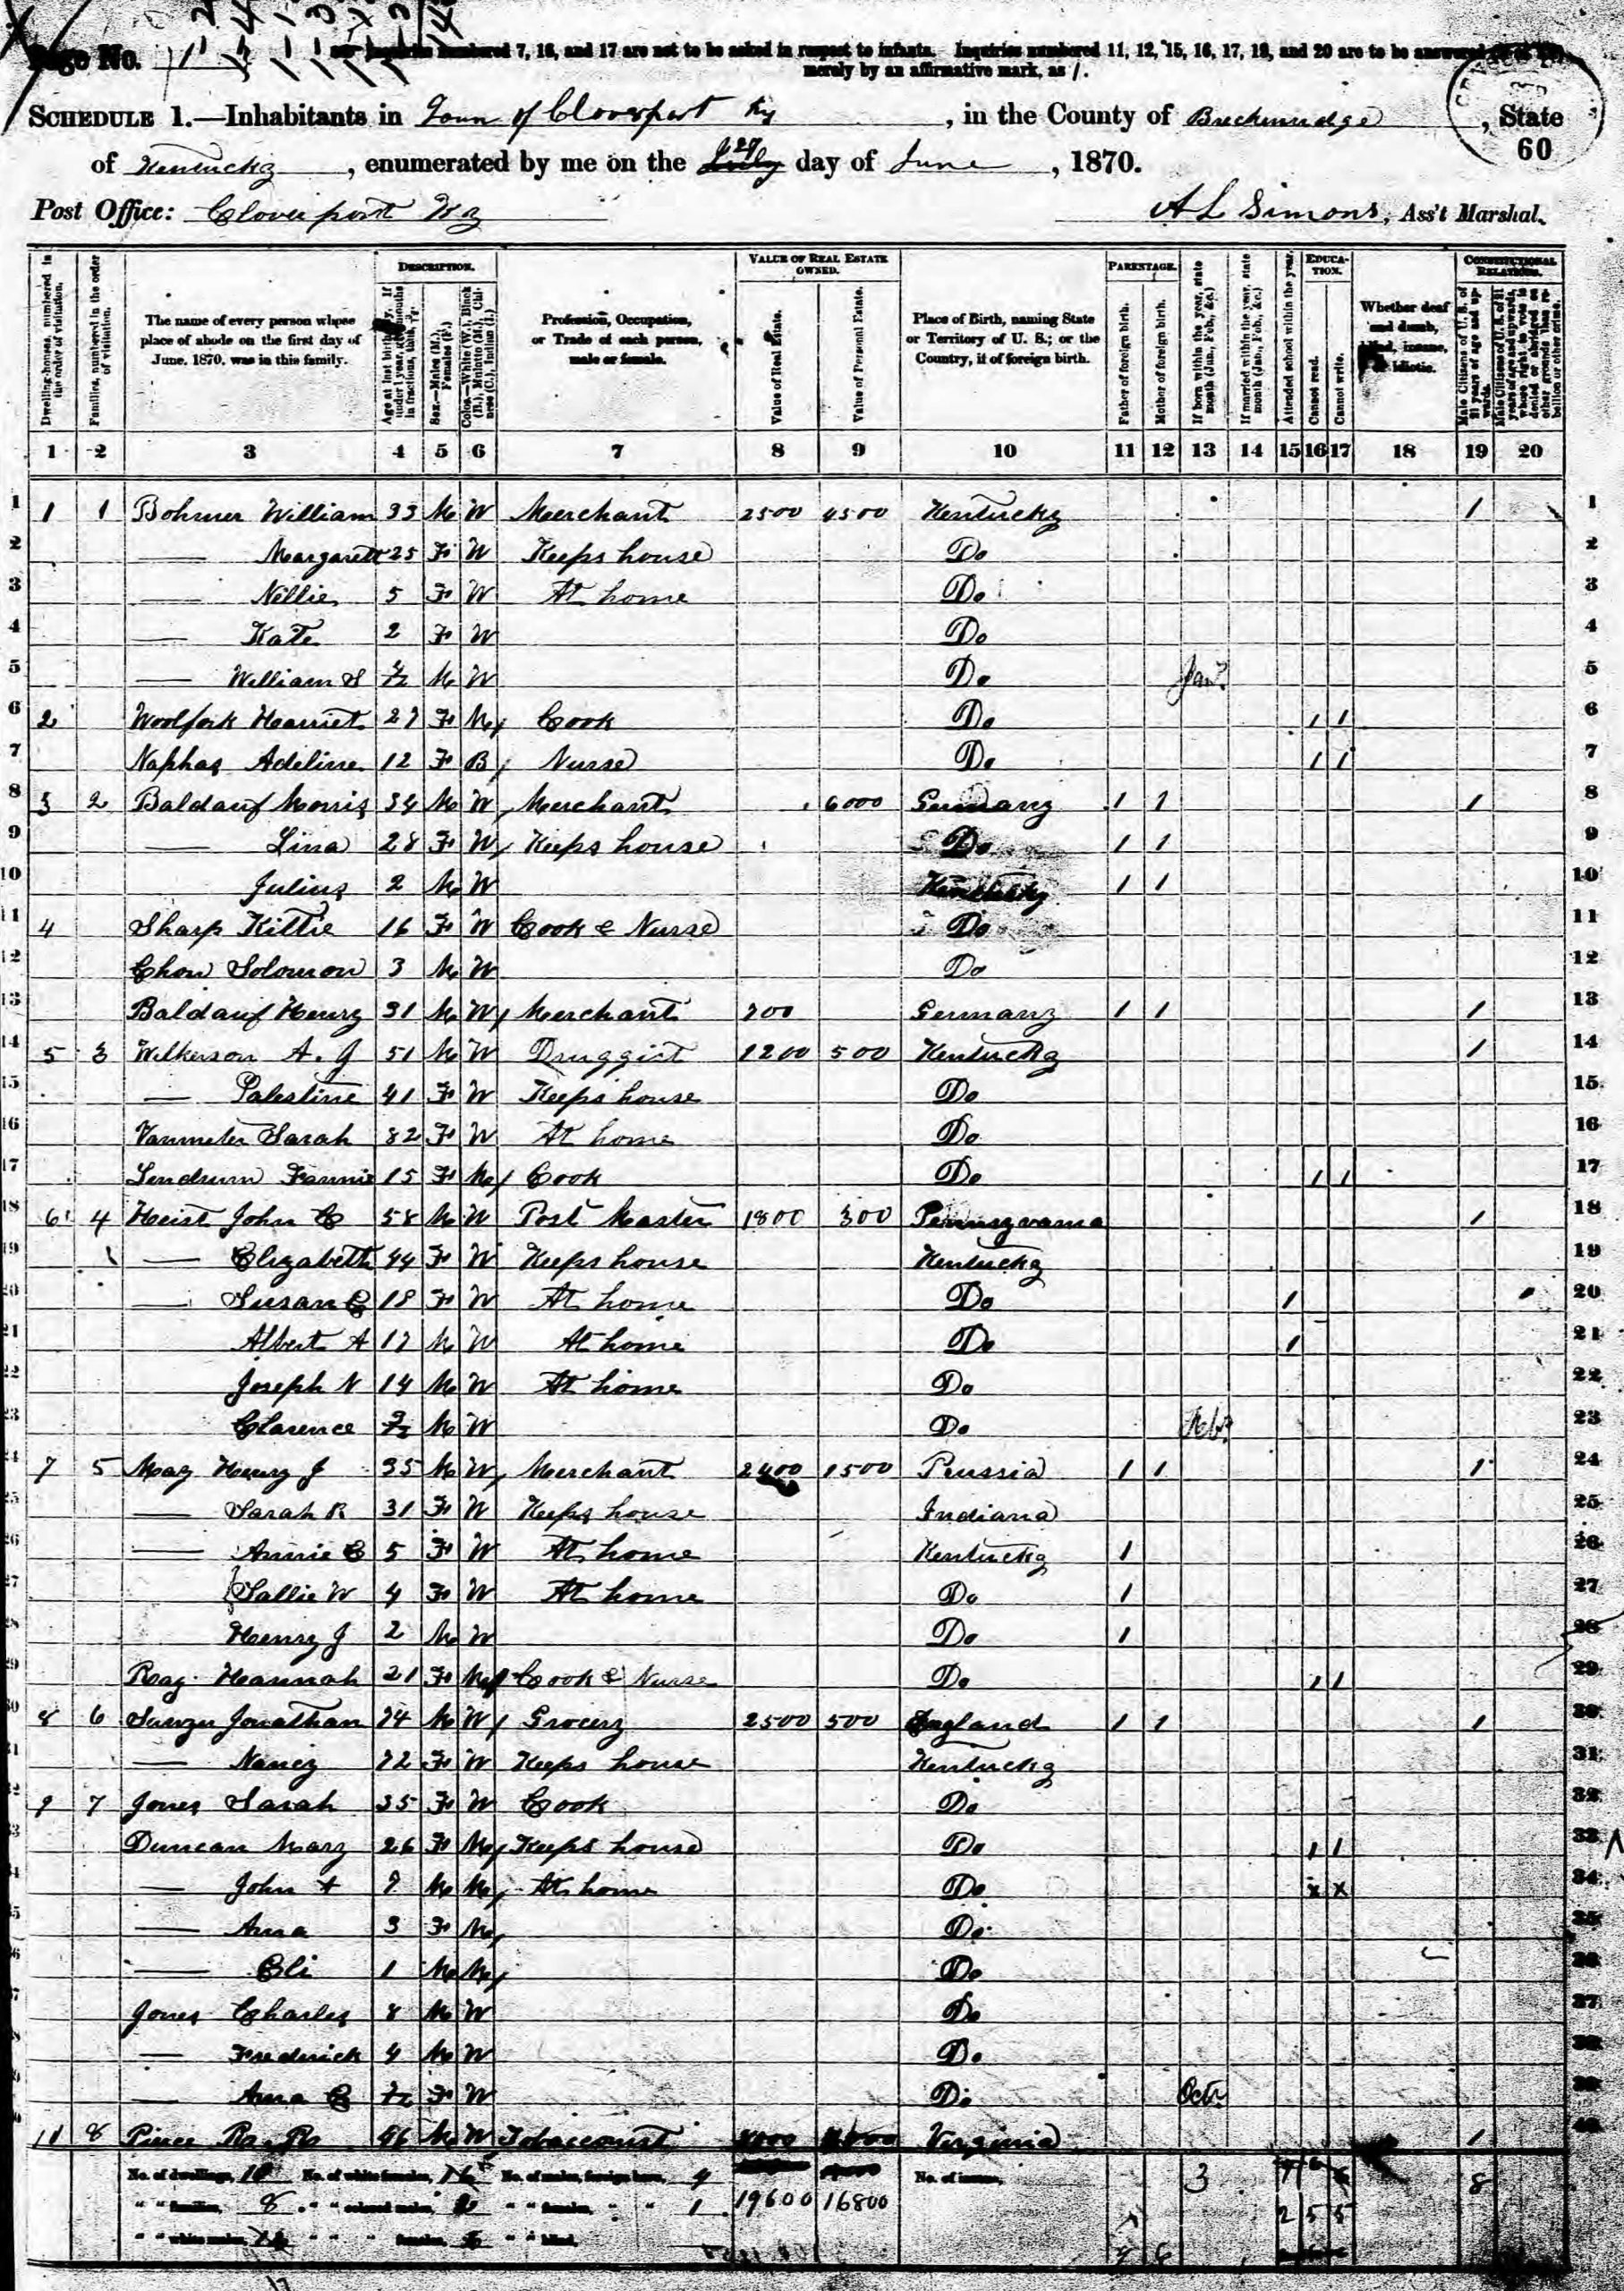 Page No. 1
Inquiries numbered 7, 16, and 17 are not to be asked in respect to infants. Inquiries numbered 11, 12, 15, 16, 17, 19, and 20 are to be answered
merely by an affirmative mark, as /.
SCHEDULE 1.—Inhabitants in Town of Cloverport Ky, in the County of Breckenridge, State
of Kentucky, enumerated by me on the day of June, 1870.
60
Post Office: Cloverport Ky
A L Simons, Ass't Marshal.
Dwelling-houses, numbered in the order of visitation.
Families, numbered in the order of visitation.
The name of every person whose place of abode on the first day of June, 1870, was in this family.
DESCRIPTION.
Age at last birthday. If under 1 year, give months in fractions, thus,
Sex.—Males (M.), Females (F.)
Color.—White (W.), Black (B.), Mulatto (M.), Chinese (C.), Indian (I.)
Profession, Occupation, or Trade of each person, male or female.
VALUE OF REAL ESTATE OWNED.
Value of Real Estate.
Value of Personal Estate.
Place of Birth, naming State or Territory of U. S.; or the Country, if of foreign birth.
PARENTAGE.
Father of foreign birth.
Mother of foreign birth.
If born within the year, state month (Jan., Feb., &c.)
If married within the year, state month (Jan., Feb., &c.)
Attended school within the year.
EDUCATION.
Cannot read.
Cannot write.
Whether deaf and dumb, blind, insane, or idiotic.
CONSTITUTIONAL RELATIONS.
Male Citizens of U. S. of 21 years of age and upwards.
Male Citizens of U. S. of 21 years of age and upwards, whose right to vote is denied or abridged on other grounds than rebellion or other crime.
1 2 3 4 5 6 7 8 9 10 11 12 13 14 15 16 17 18 19 20
1 1 1 Bohmer William 33 M W Merchant 2500 4500 Kentucky 1 1
2 — Margarett 25 F W Keeps house Do 2
3 — Nellie 5 F W At home Do 3
4 — Kate 2 F W Do 4
5 — William S M W Do Jan 5
6 2 Woolfork Harriet 27 F M Cook Do 1 1 6
7 Adeline 12 F B Nurse Do 1 1 7
8 3 2 Baldauf Morris 34 M W Merchant 6000 Germany 1 1 1 8
9 — Lina 28 F W Keeps house Do 1 1 9
10 Julius 2 M W Kentucky 1 1 10
11 4 Sharp Kittie 16 F W Cook & Nurse Do 11
12 Solomon 3 M W Do 12
13 Baldauf Henry 31 M W Merchant Germany 1 1 1 13
14 5 3 Wilkerson A. J 51 M W Druggist 1200 500 Kentucky 1 14
15 — Palestine 41 F W Keeps house Do 15
16 Vanmeter Sarah 82 F W At home Do 16
17 Lendrum Fannie 15 F M Cook Do 1 1 17
18 6 4 Heist John C 58 M W Post Master 1800 300 Pennsylvania 1 18
19 — Elizabeth 44 F W Keeps house Kentucky 19
20 — Susan E 18 F W At home Do 1 20
21 Albert A 17 M W At home Do 1 21
22 Joseph N 14 M W At home Do 22
23 Clarence M W Do Feb 23
24 7 5 May Henry J 35 M W Merchant 2400 1500 Prussia 1 1 1 24
25 — Sarah R 31 F W Keeps house Indiana 25
26 — Annie E 5 F W At home Kentucky 1 26
27 Sallie W 4 F W At home Do 1 27
28 Henry J 2 M W Do 1 28
29 Ray Hannah 21 F M Cook & Nurse Do 1 1 29
30 8 6 Jonathan 74 M W Grocery 2500 500 England 1 1 1 30
31 — Nancy 72 F W Keeps house Kentucky 31
32 9 7 Jones Sarah 35 F W Cook Do 32
33 Duncan Mary 26 F M Keeps house Do 1 1 33
34 — John 7 M M At home Do x x 34
35 — Anna 3 F M Do 35
36 — Eli 1 M M Do 36
37 Jones Charles 8 M W Do 37
38 — Frederick 4 M W Do 38
39 — Anna E F W Do Oct 39
40 8 Pierce 46 M W Tobacconist Virginia 1 40
No. of dwellings, 10 No. of white females, 16 No. of males, foreign born, 4 No. of insane, 3 8
" " families, 8 " " colored males, " " females, " " 1 19600 16800 2 5 5
" " white males, " " " females, 6 " " blind,